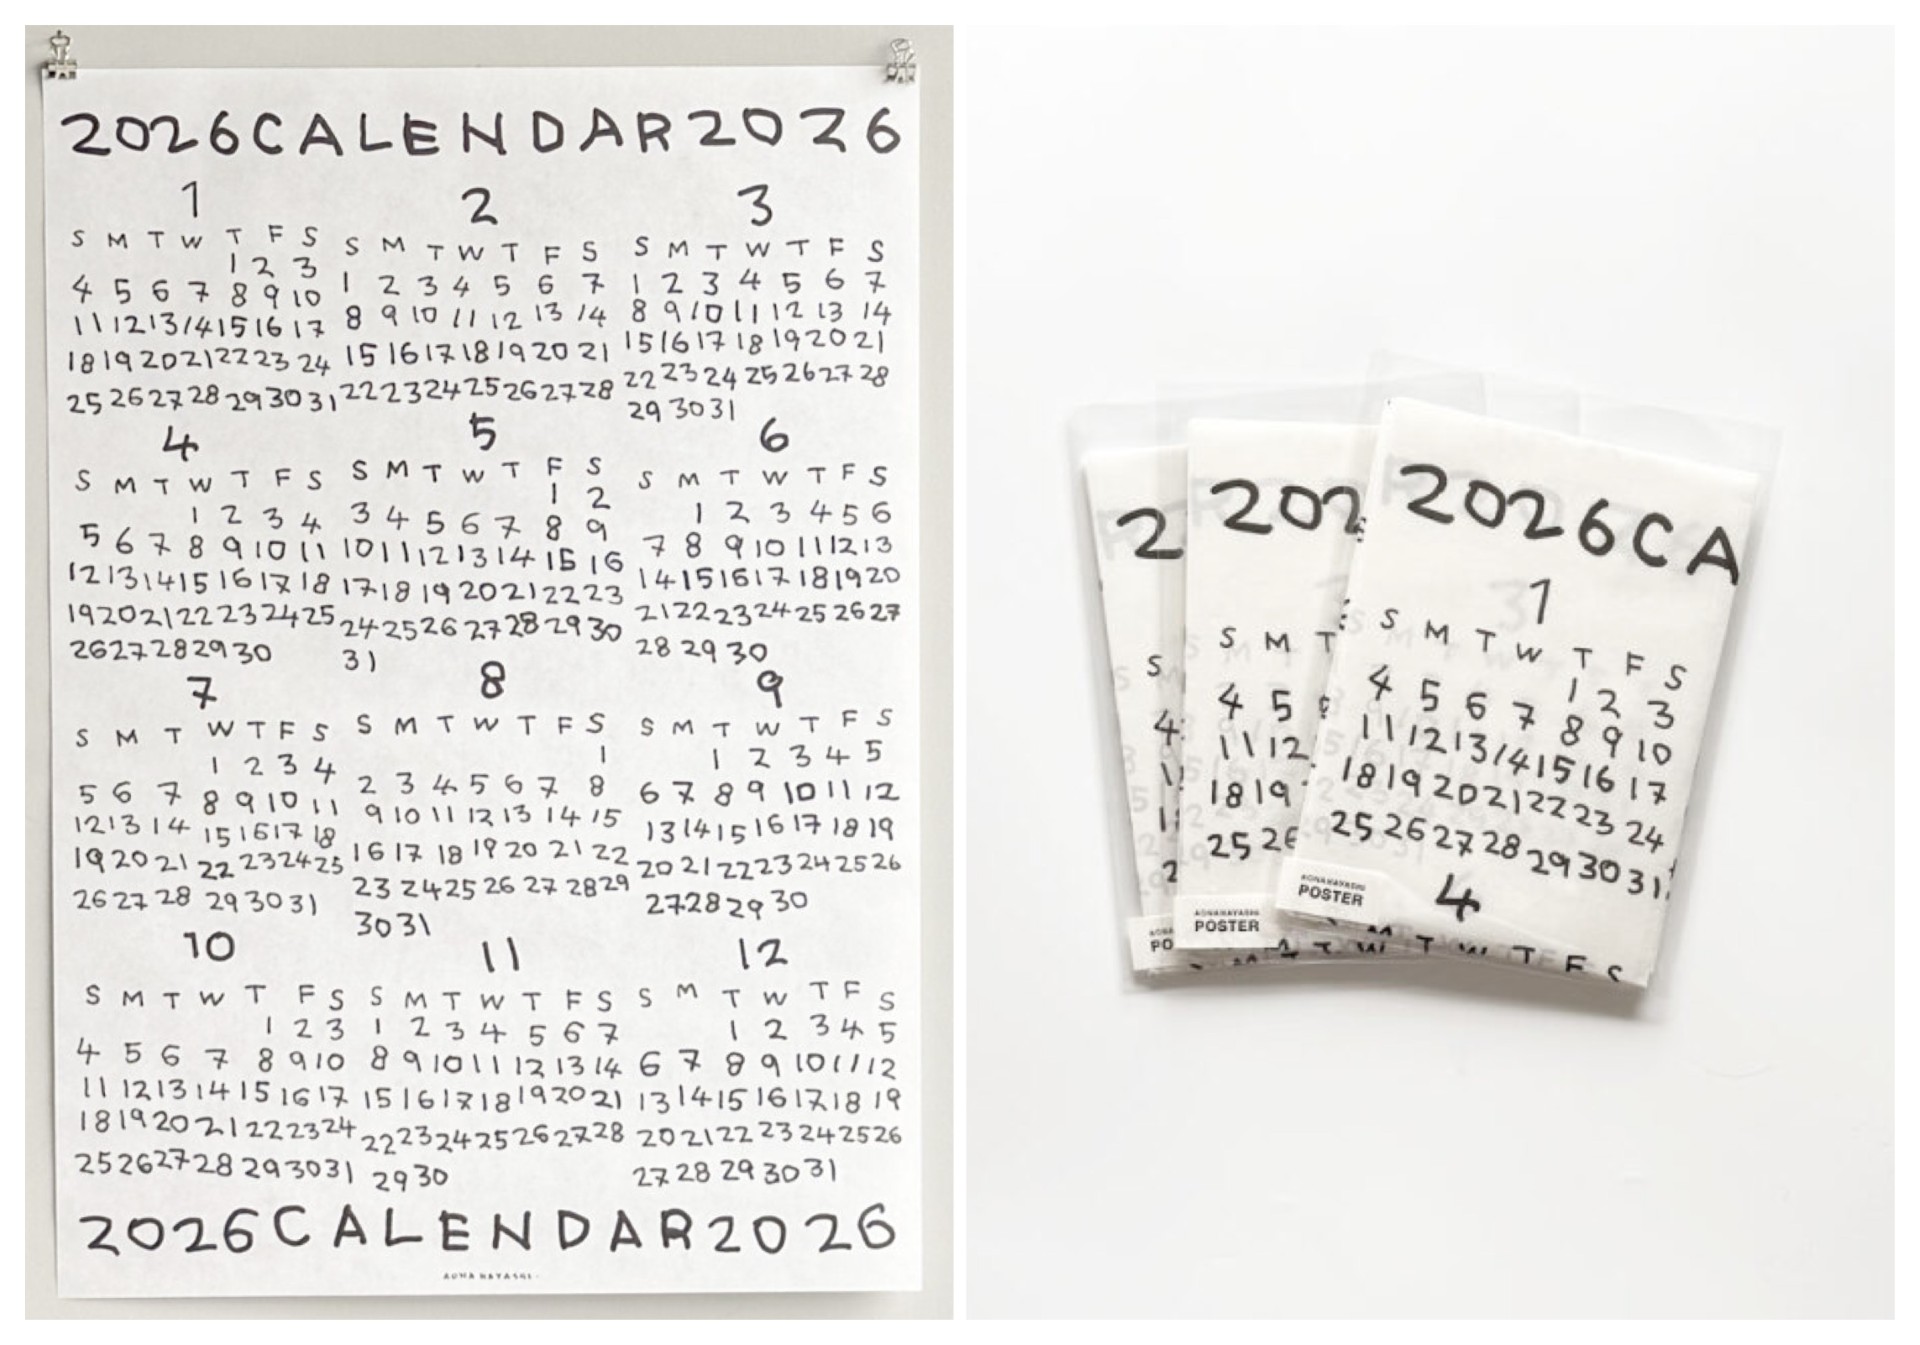 2026CALENDAR2026
1
S M T W T F S
1 2 3
4 5 6 7 8 9 10
11 12 13 14 15 16 17
18 19 20 21 22 23 24
25 26 27 28 29 30 31
2
S M T W T F S
1 2 3 4 5 6 7
8 9 10 11 12 13 14
15 16 17 18 19 20 21
22 23 24 25 26 27 28
3
S M T W T F S
1 2 3 4 5 6 7
8 9 10 11 12 13 14
15 16 17 18 19 20 21
22 23 24 25 26 27 28
29 30 31
4
S M T W T F S
1 2 3 4
5 6 7 8 9 10 11
12 13 14 15 16 17 18
19 20 21 22 23 24 25
26 27 28 29 30
5
S M T W T F S
1 2
3 4 5 6 7 8 9
10 11 12 13 14 15 16
17 18 19 20 21 22 23
24 25 26 27 28 29 30
31
6
S M T W T F S
1 2 3 4 5 6
7 8 9 10 11 12 13
14 15 16 17 18 19 20
21 22 23 24 25 26 27
28 29 30
7
S M T W T F S
1 2 3 4
5 6 7 8 9 10 11
12 13 14 15 16 17 18
19 20 21 22 23 24 25
26 27 28 29 30 31
8
S M T W T F S
1
2 3 4 5 6 7 8
9 10 11 12 13 14 15
16 17 18 19 20 21 22
23 24 25 26 27 28 29
30 31
9
S M T W T F S
1 2 3 4 5
6 7 8 9 10 11 12
13 14 15 16 17 18 19
20 21 22 23 24 25 26
27 28 29 30
10
S M T W T F S
1 2 3
4 5 6 7 8 9 10
11 12 13 14 15 16 17
18 19 20 21 22 23 24
25 26 27 28 29 30 31
11
S M T W T F S
1 2 3 4 5 6 7
8 9 10 11 12 13 14
15 16 17 18 19 20 21
22 23 24 25 26 27 28
29 30
12
S M T W T F S
1 2 3 4 5
6 7 8 9 10 11 12
13 14 15 16 17 18 19
20 21 22 23 24 25 26
27 28 29 30 31
2026CALENDAR2026
AONA HAYASHI
2
S
4
PO
202
S M T
4 5
11 12
18 19
25 26
AONAHAYASHI
POSTER
2026CA
1
S M T W T F S
1 2 3
4 5 6 7 8 9 10
11 12 13 14 15 16 17
18 19 20 21 22 23 24
25 26 27 28 29 30 31
4
M T W T F S
AONAHAYASHI
POSTER